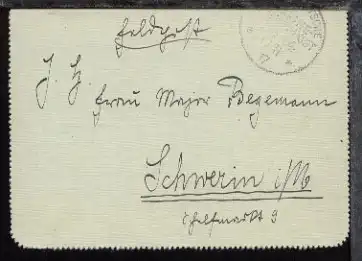 Feldpost
J. H.
Frau Major Begemann
Schwerin i/M
Schelfmarkt 9